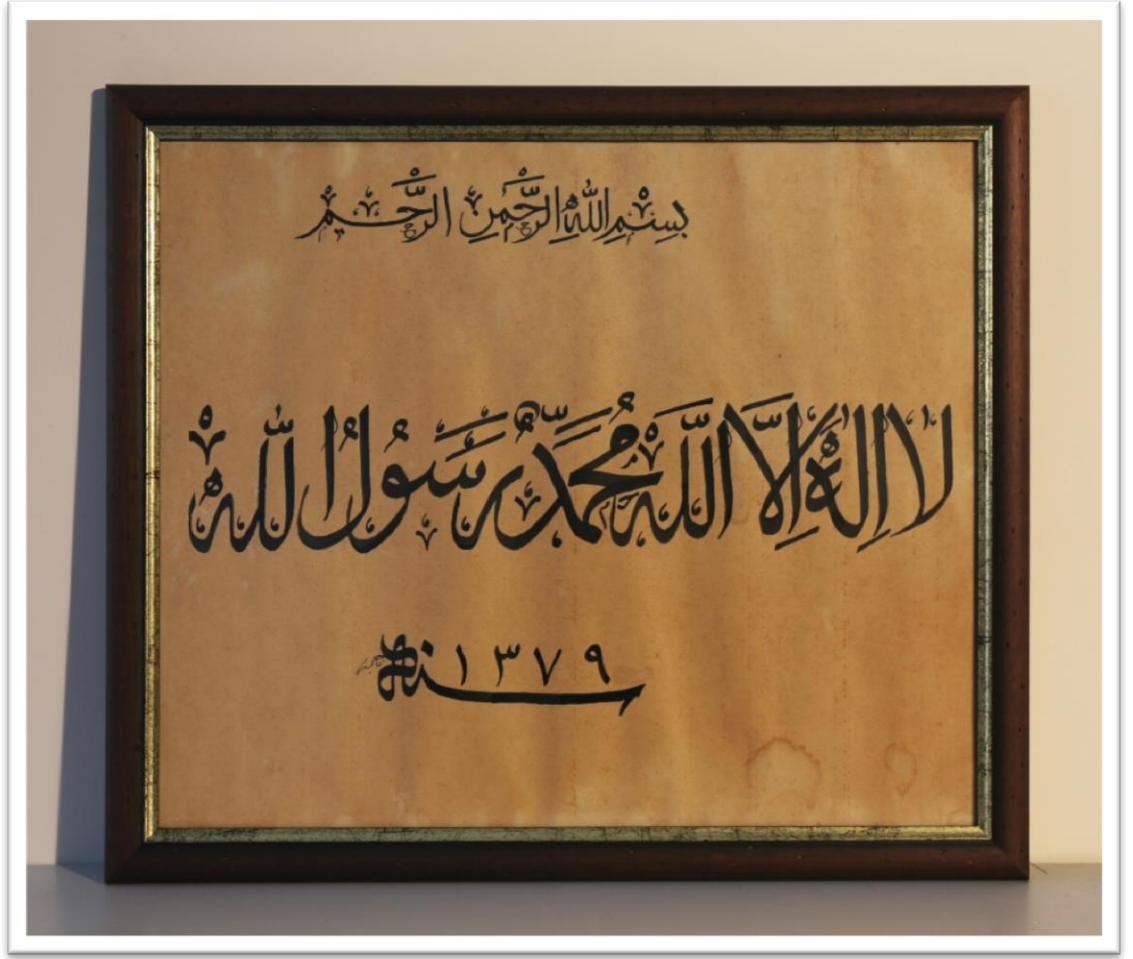 بِسْمِ اللّٰهِ الرَّحْمٰنِ الرَّحِيْمِ
لَا اِلٰهَ اِلَّا اللّٰهُ مُحَمَّدٌ رَسُوْلُ اللّٰهِ
سنة ١٣٧٩